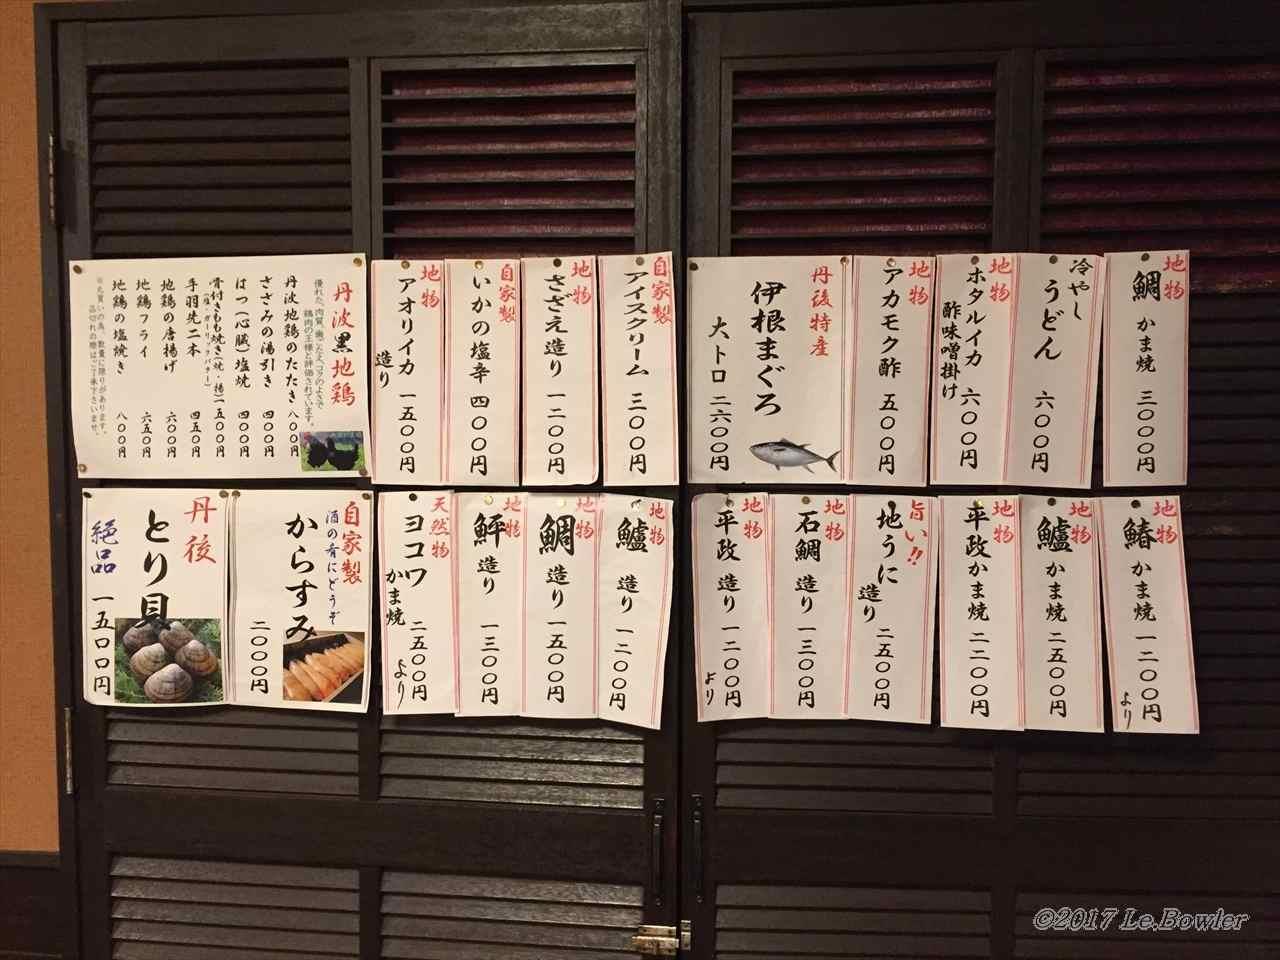 地物
鯛 かま焼 三〇〇〇円
冷やし
うどん 六〇〇円
地物
ホタルイカ
酢味噌掛け 六〇〇円
アカモク酢 五〇〇円
丹後特産
伊根まぐろ
大トロ 二六〇〇円
自家製
アイスクリーム 三〇〇円
地物
さざえ造り 一二〇〇円
自家製
いかの塩辛 四〇〇円
地物
アオリイカ
造り 一五〇〇円
丹波黒地鶏
優れた、肉質、歯ごたえ、コクのよさで
鶏肉の王様と評価されています。
丹波地鶏のたたき 八〇〇円
ささみの湯引き 四〇〇円
はつ（心臓）塩焼 四〇〇円
骨付きもも焼き（焼・揚）一五〇〇円
（塩・ガーリックバター）
手羽先二本 四五〇円
地鶏の唐揚げ 六〇〇円
地鶏フライ 六五〇円
地鶏の塩焼き 八〇〇円
品切れの際はご了承下さいませ。
地物
鰆かま焼 一二〇〇円
より
地物
鱸かま焼 二五〇〇円
地物
平政かま焼 二二〇〇円
旨い!!
地うに
造り 二五〇〇円
地物
石鯛 造り 一三〇〇円
地物
平政 造り 一二〇〇円
より
地物
鱸 造り 一二〇〇円
地物
鯛 造り 一五〇〇円
地物
鮃 造り 一三〇〇円
天然物
ヨコワ
かま焼 二五〇〇円
より
自家製
酒の肴にどうぞ
からすみ
二〇〇〇円
丹後
とり貝
絶品 一五〇〇円
©2017 Le.Bowler